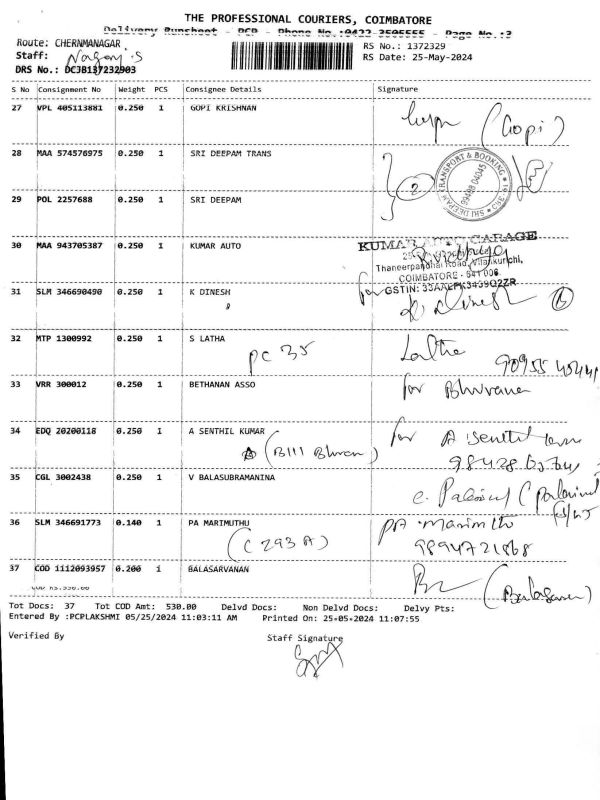 THE PROFESSIONAL COURIERS, COIMBATORE
Delivery Runsheet - PCP - Phone No.:0422-3505555 - Page No.:3
Route: CHERNMANAGAR
RS No.: 1372329
Staff: Nagaraj.S
RS Date: 25-May-2024
DRS No.: DCJB137232903
S No Consignment No Weight PCS Consignee Details Signature
27 VPL 405113881 0.250 1 GOPI KRISHNAN (Gopi)
28 MAA 574576975 0.250 1 SRI DEEPAM TRANS
2
SRI DEEPAM TRANSPORT & BOOKING
99488 04045
29 POL 2257688 0.250 1 SRI DEEPAM
30 MAA 943705387 0.250 1 KUMAR AUTO KUMAR AUTO GARAGE
Thaneerpandhal Road, Vilankurichi,
COIMBATORE - 641 006
GSTIN: 33AALPK3439Q2ZR
31 SLM 346690490 0.250 1 K DINESH for K. Dinesh
32 MTP 1300992 0.250 1 S LATHA Latha
PC 35
33 VRR 300012 0.250 1 BETHANAN ASSO for Bhuvana
34 EDQ 20200118 0.250 1 A SENTHIL KUMAR for A. Senthil
35 CGL 3002438 0.250 1 V BALASUBRAMANINA
36 SLM 346691773 0.140 1 PA MARIMUTHU PA. Marimuthu
(C 293 A) 9894721868
37 COD 1112093957 0.200 1 BALASARVANAN
COD Rs.530.00
Tot Docs: 37 Tot COD Amt: 530.00 Delvd Docs: Non Delvd Docs: Delvy Pts:
Entered By :PCPLAKSHMI 05/25/2024 11:03:11 AM Printed On: 25-05-2024 11:07:55
Verified By Staff Signature